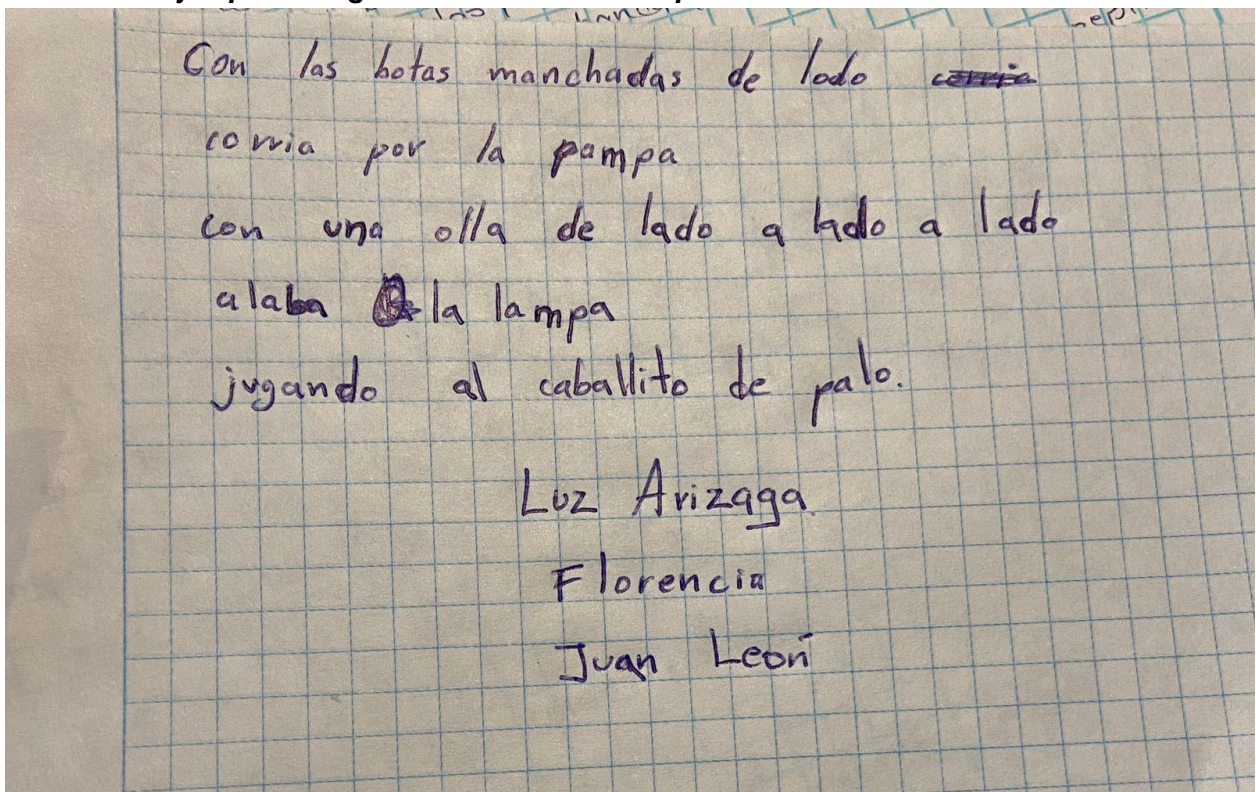 Con las botas manchadas de lodo
corria por la pampa
con una olla de lado a lado a lado
alaba la lampa
jugando al caballito de palo.
Luz Arizaga
Florencia
Juan León